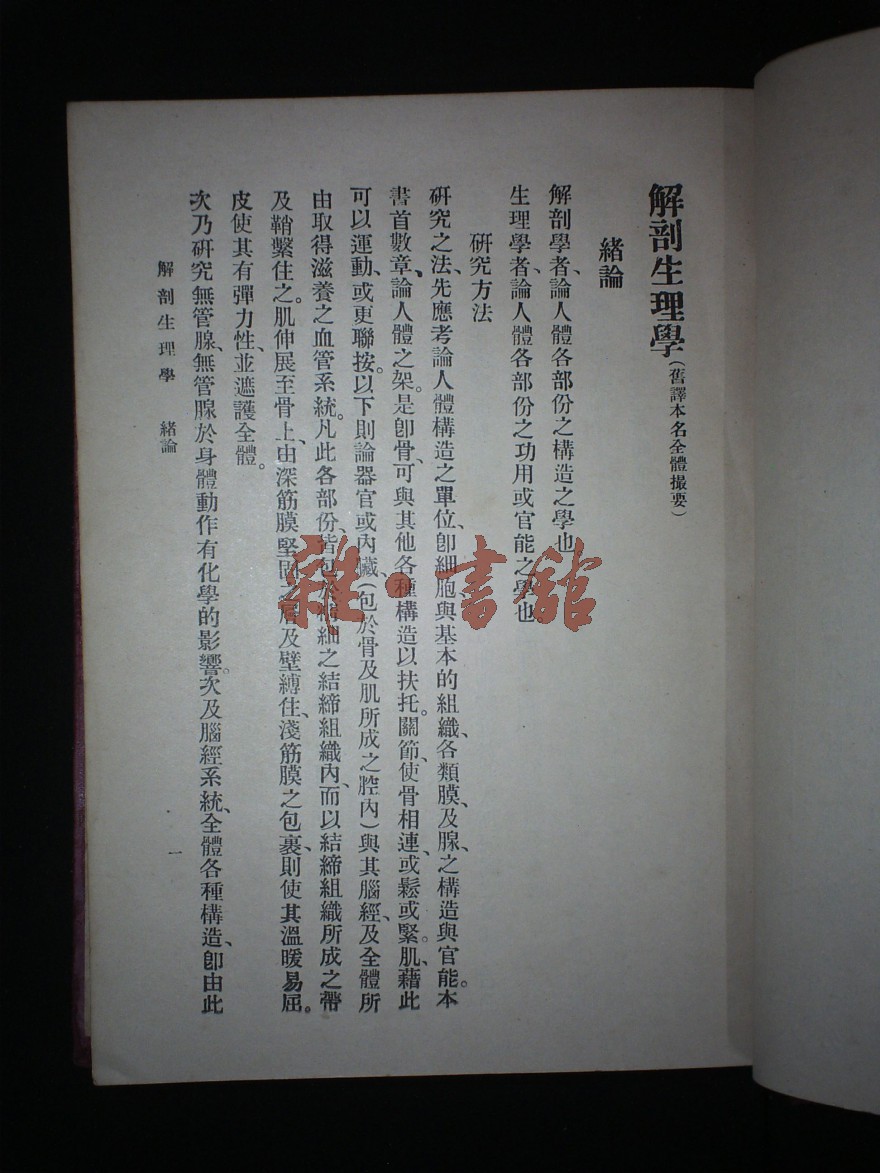 解剖生理學(舊譯本名全體撮要)
緒論
解剖學者、論人體各部份之構造之學也
生理學者、論人體各部份之功用或官能之學也。
研究方法
研究之法、先應考論人體構造之單位、卽細胞與基本的組織、各類膜、及腺、之構造與官能。本
書首數章、論人體之架。是卽骨、可與其他各種構造以扶托。關節、使骨相連、或鬆或緊。肌、藉此
可以運動、或更聯按。以下則論器官或內臟、(包於骨及肌所成之腔內)與其腦經、及全體所
由取得滋養之血管系統。凡此各部份、皆包於之結締組織內、而以結締組織所成之帶
及鞘繫住之。肌伸展至骨上、由深筋膜堅固之層及壁縛住、淺筋膜之包裹、則使其溫暖易屈。
皮使其有彈力性、並遮護全體。
次乃研究無管腺、無管腺於身體動作有化學的影響。次及腦經系統、全體各種構造、卽由此
解剖生理學 緒論
一
雜·書館